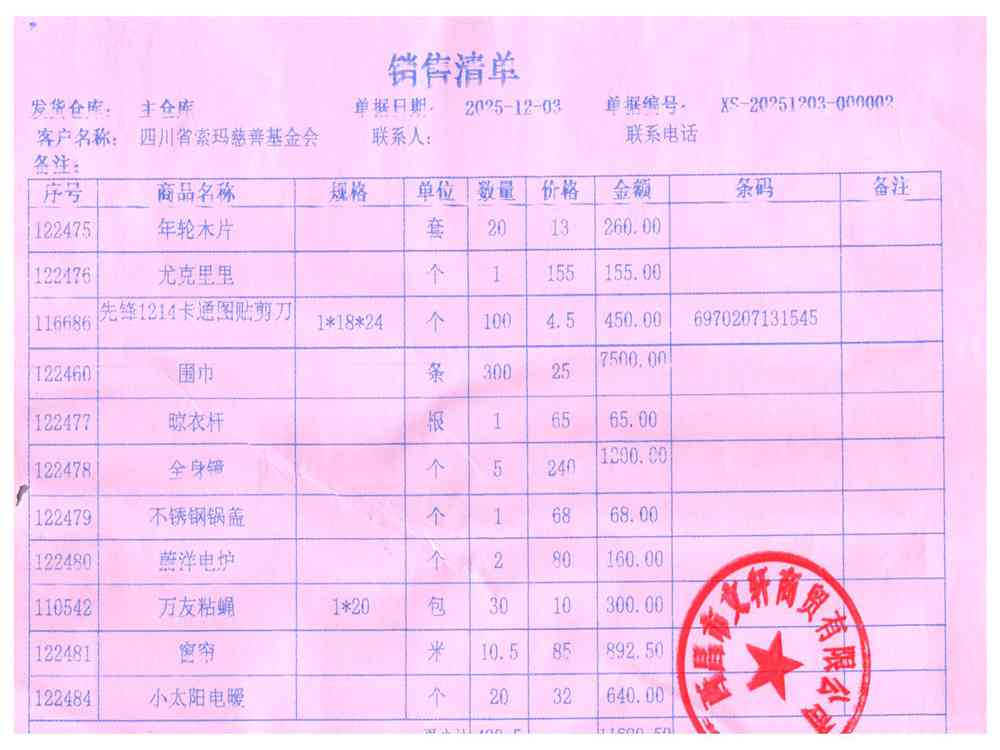 销售清单
发货仓库: 主仓库 单据日期: 2025-12-03 单据编号: XS-20251203-000002
客户名称: 四川省索玛慈善基金会 联系人: 联系电话
备注:
序号 商品名称 规格 单位 数量 价格 金额 条码 备注
122475 年轮木片 套 20 13 260.00
122476 尤克里里 个 1 155 155.00
116686 先锋1214卡通图贴剪刀 1*18*24 个 100 4.5 450.00 6970207131545
122460 围巾 条 300 25 7500.00
122477 晾衣杆 根 1 65 65.00
122478 全身镜 个 5 240 1200.00
122479 不锈钢锅盖 个 1 68 68.00
122480 电炉 个 2 80 160.00
110542 万友粘蝇 1*20 包 30 10 300.00
122481 窗帘 米 10.5 85 892.50
122484 小太阳电暖 个 20 32 640.00
西昌市文轩商贸有限公司